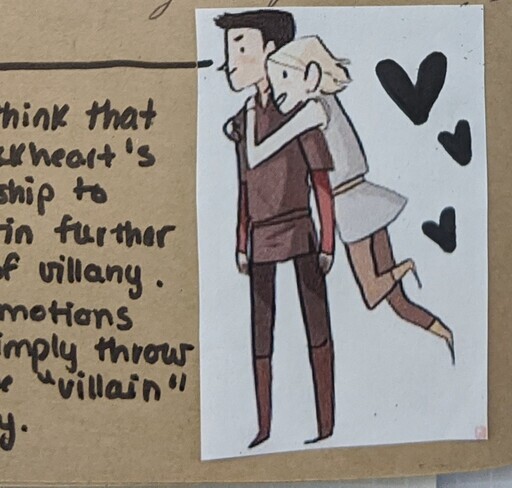 think that
ckheart's
ship to
in further
of villany.
motions
imply throw
e "villain"
y.